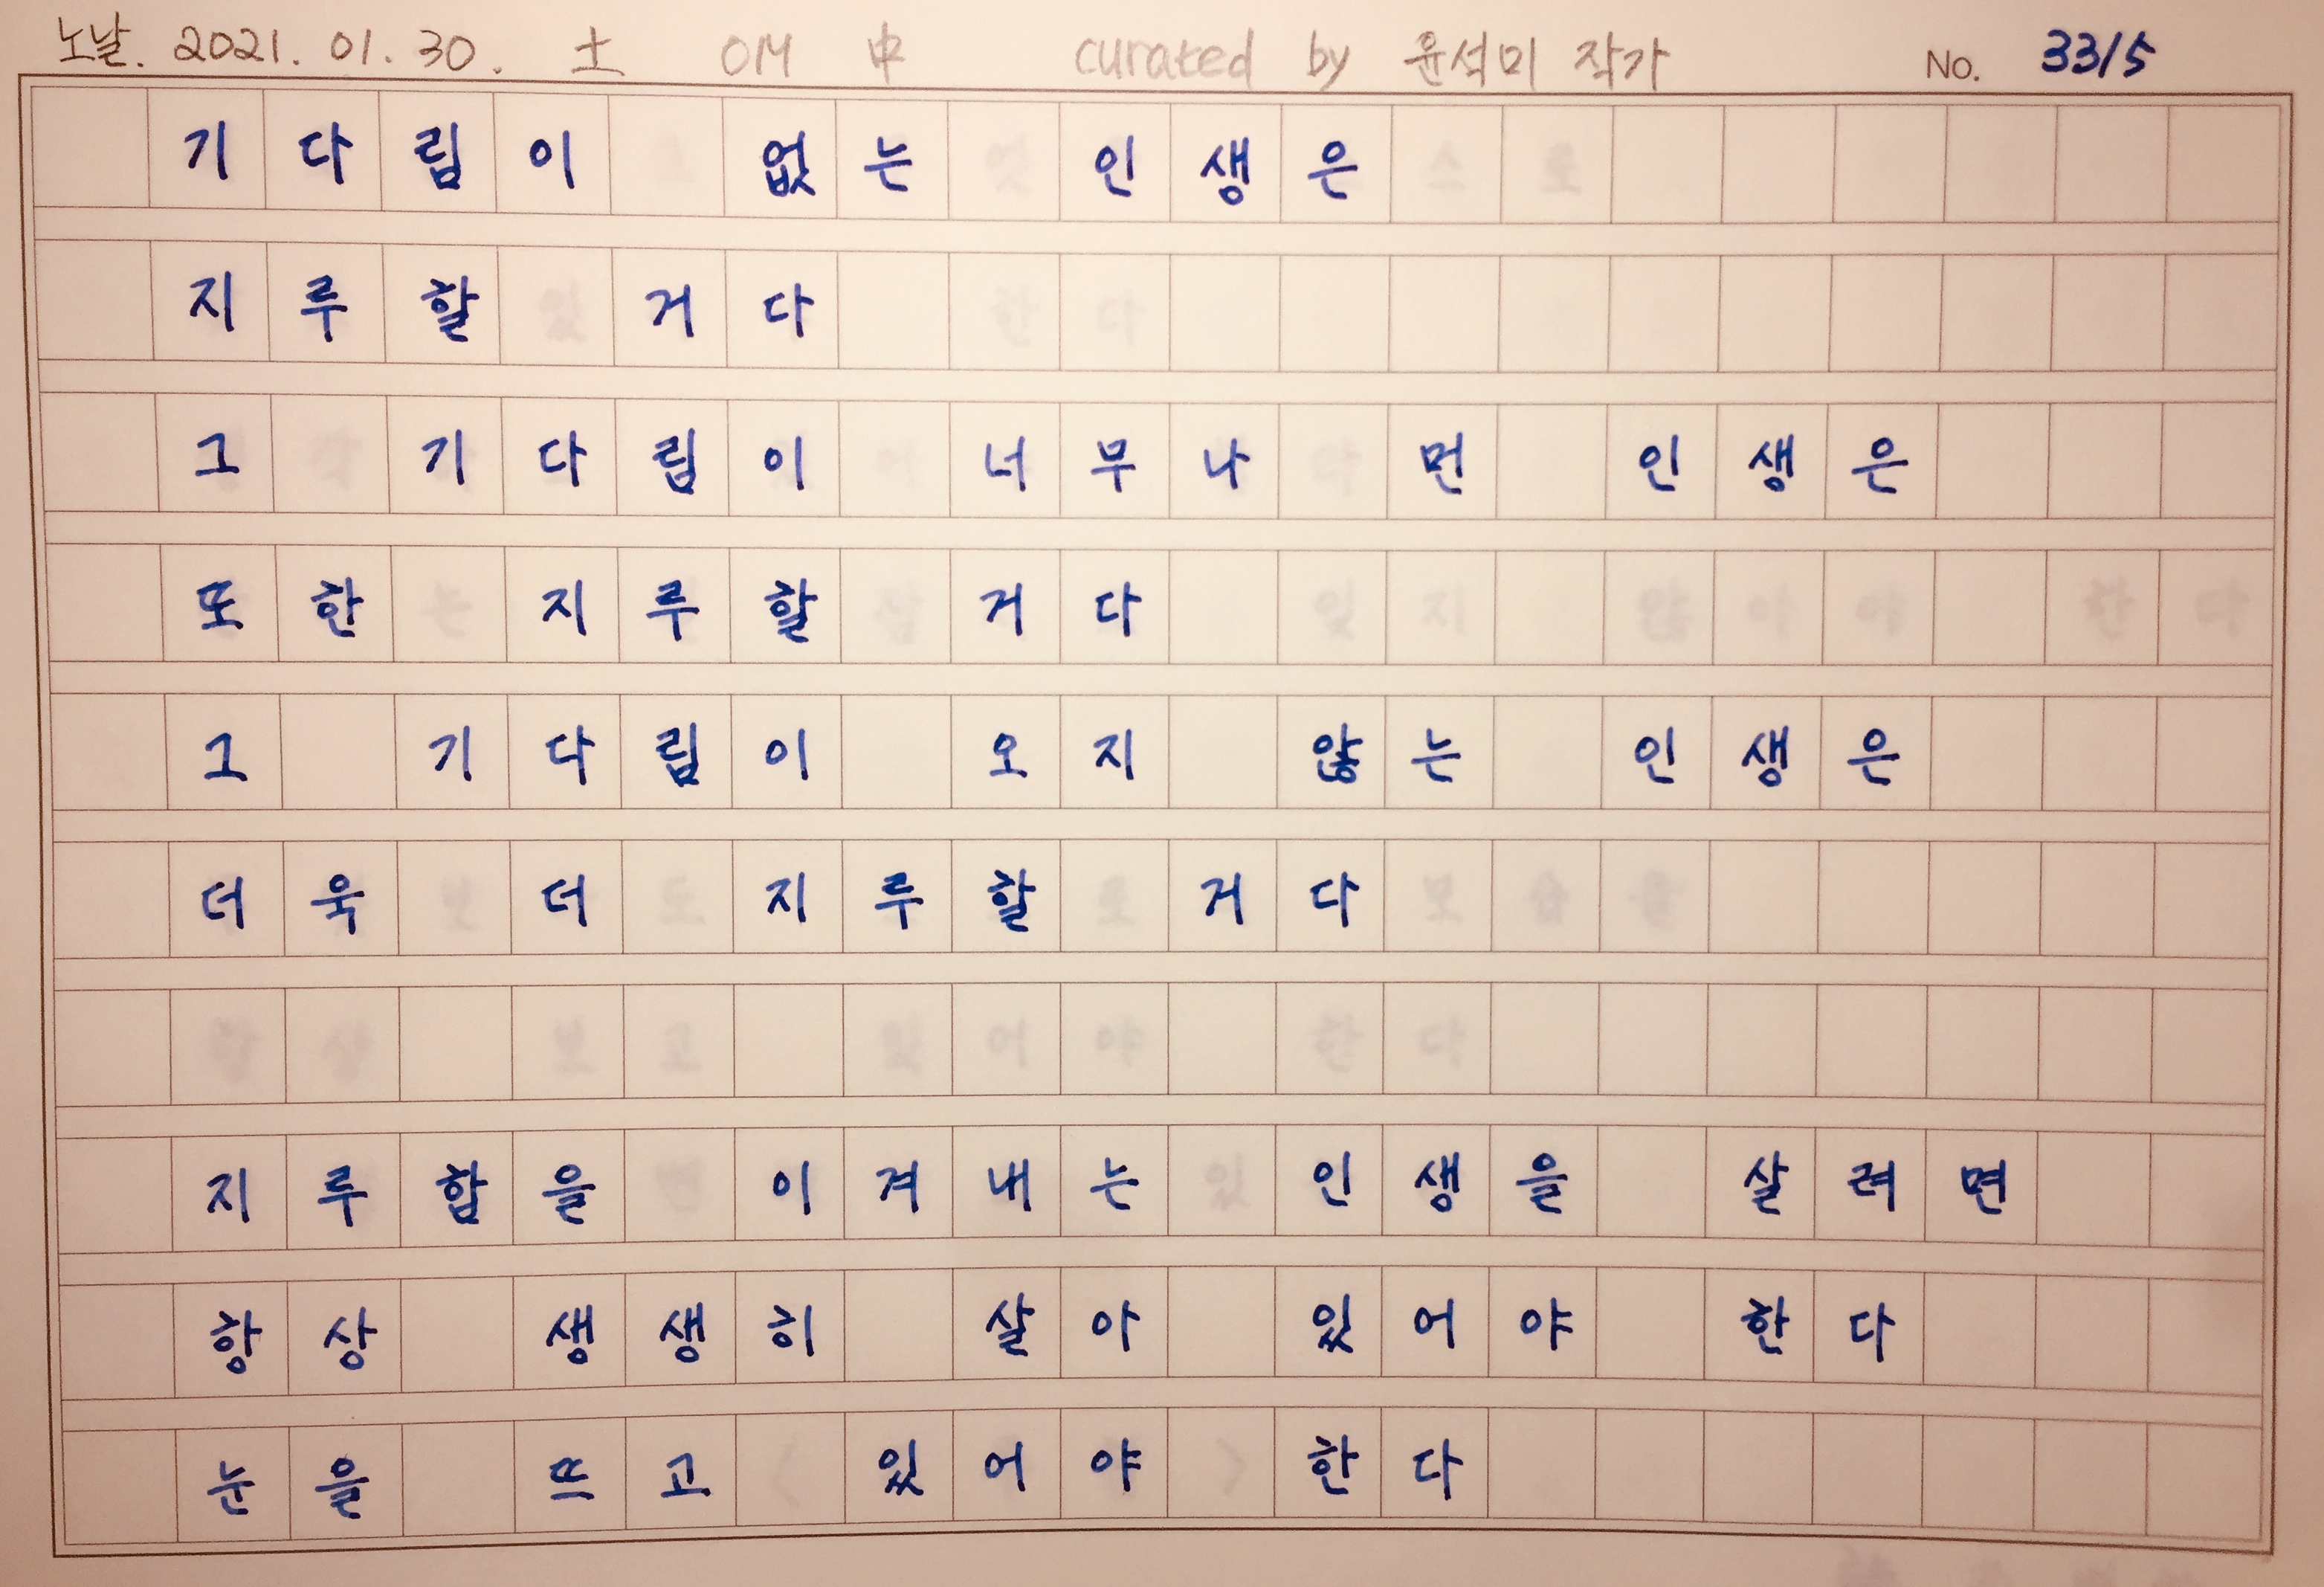 노날. 2021. 01. 30. 土 OM 中 curated by 윤석미 작가 No. 33/5
기다림이 없는 인생은
지루할 거다
그 기다림이 너무나 먼 인생은
또한 지루할 거다
그 기다림이 오지 않는 인생은
더욱 더 지루할 거다
지루함을 이겨내는 인생을 살려면
항상 생생히 살아 있어야 한다
눈을 뜨고 있어야 한다